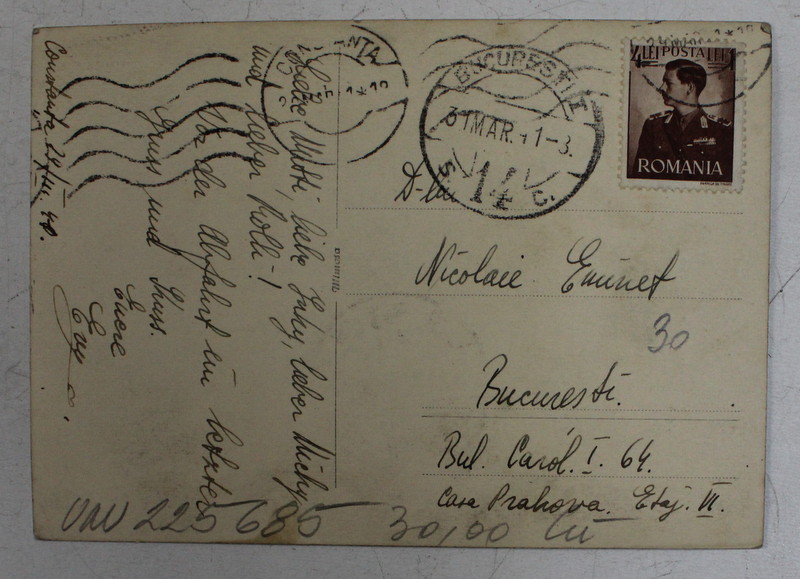 Constanta 29/XII. 40.
Liebe Mutti, liebe Juhy, lieber Michy
und lieber Kolli!
Vor der Abfahrt ein letzter
Gruss und Kuss.
Euere
CONSTANTA
BUCURESTI I
31 MAR. 41-3.
14
S. C.
4 LEI POSTA LEI 4
ROMANIA
D-lui
Nicolaie Eminet
30
Bucuresti.
Bul. Carol. I. 64.
Casa Prahova. Etaj. VI.
UAU 225 685 30,00 lei